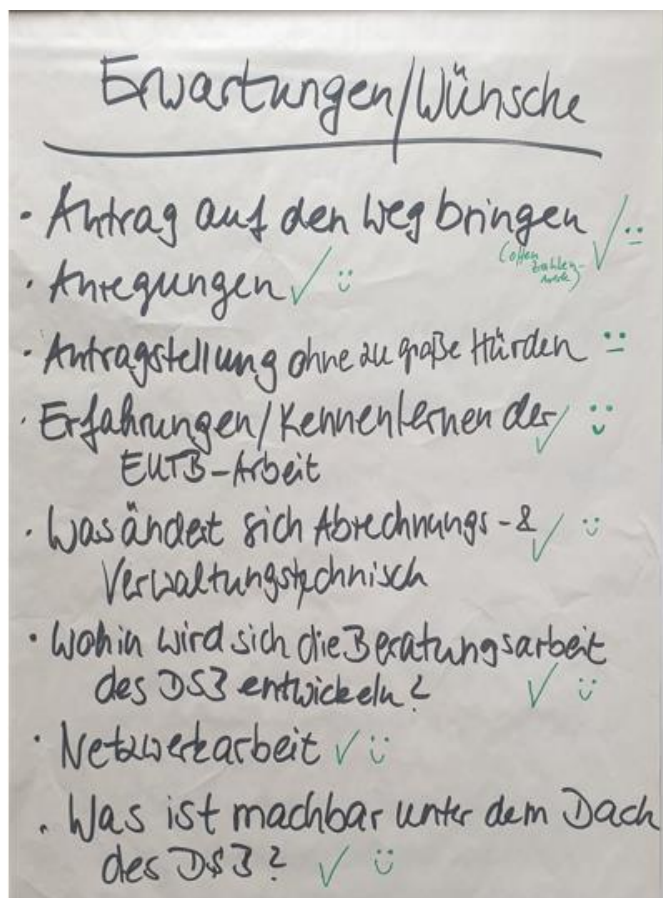 Erwartungen/Wünsche
· Antrag auf den Weg bringen
(offen
· Anregungen
· Antragstellung ohne zu große Hürden
· Erfahrungen/Kennenlernen der
EUTB-Arbeit
· Was ändert sich Abrechnungs-&
Verwaltungstechnisch
· Wohin wird sich die Beratungsarbeit
des DSB entwickeln?
· Netzwerkarbeit
· Was ist machbar unter dem Dach
des DSB?